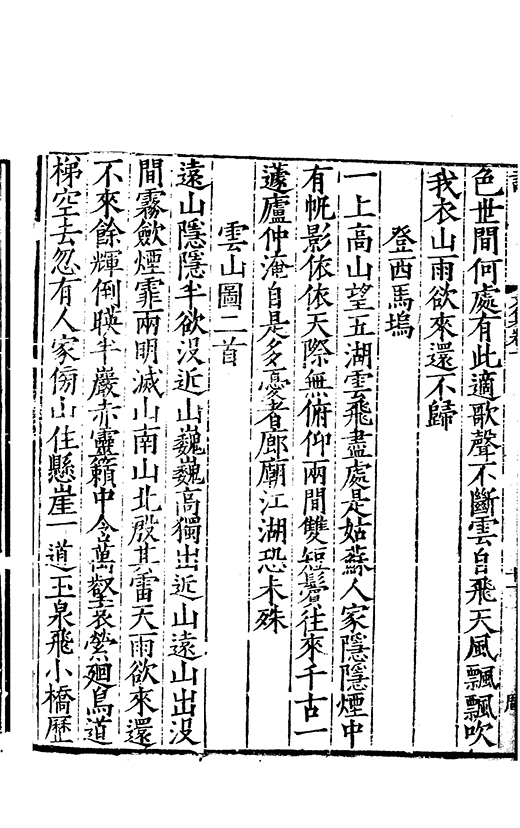 色世間何處有此適歌聲不斷雲自飛天風飄飄吹
我衣山雨欲來還不歸
登西馬塢
一上高山望五湖雲飛盡處是姑蘇人家隱隱煙中
有帆影依依天際無俯仰兩間雙短鬢往來千古一
蘧廬仲淹自是多憂者廊廟江湖恐未殊
雲山圖二首
遠山隱隱半欲沒近山巍巍高獨出近山遠山出沒
間霧斂煙霏兩明滅山南山北殷其雷天雨欲來還
不來餘輝倒暎半巖赤靈籟中含萬壑哀縈廻鳥道
梯空去忽有人家傍山住懸崖一道玉泉飛小橋歷